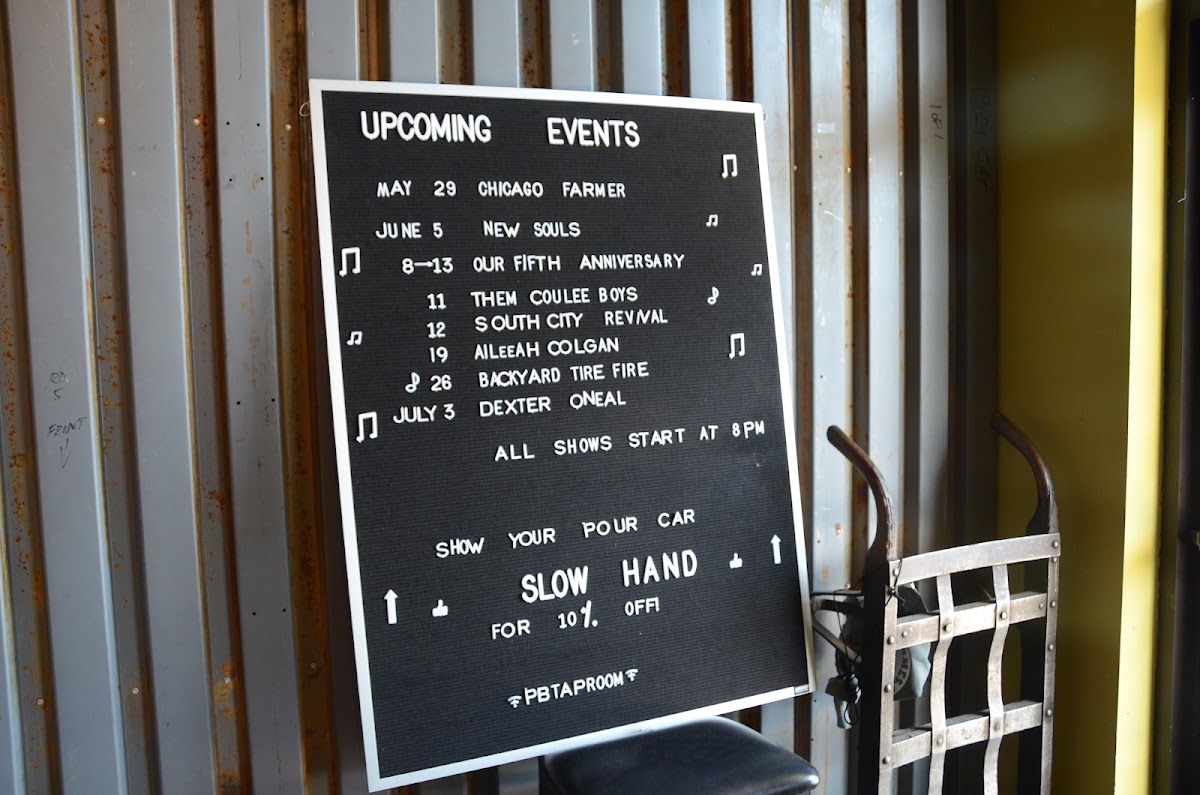 UPCOMING EVENTS
MAY 29 CHICAGO FARMER
JUNE 5 NEW SOULS
8→13 OUR FIFTH ANNIVERSARY
11 THEM COULEE BOYS
12 SOUTH CITY REVIVAL
19 AILEEAH COLGAN
26 BACKYARD TIRE FIRE
JULY 3 DEXTER ONEAL
ALL SHOWS START AT 8PM
SHOW YOUR POUR CAR
SLOW HAND
FOR 10% OFF!
PBTAPROOM
1811